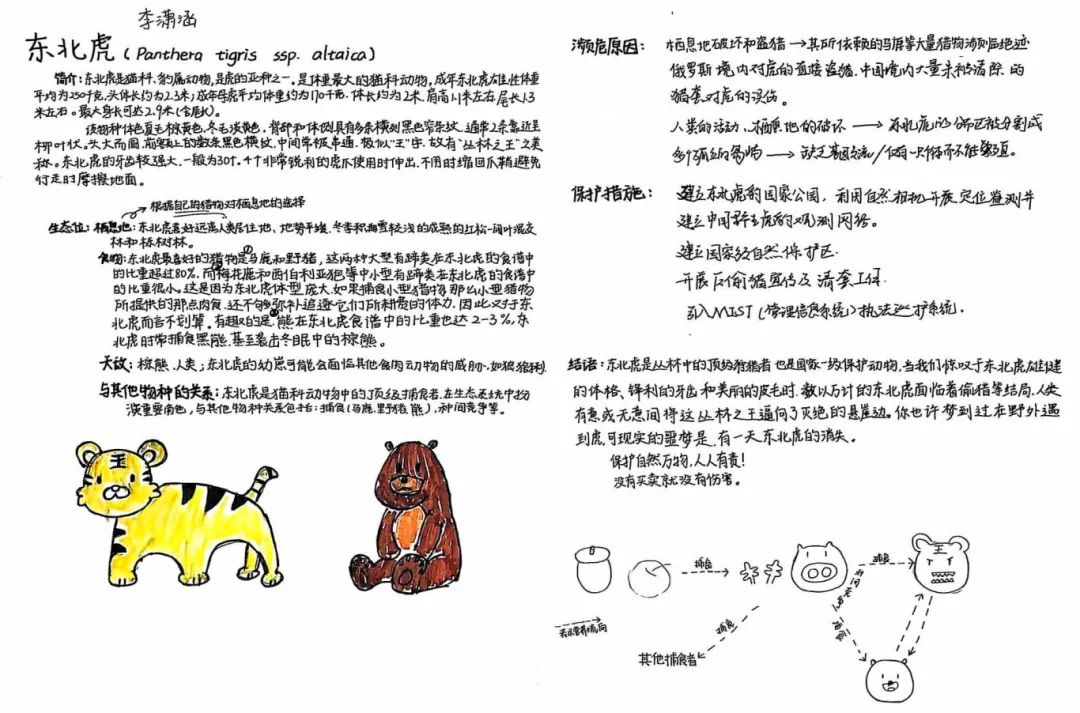 李潇涵
东北虎(Panthera tigris ssp. altaica)
简介:东北虎是猫科、豹属动物,是虎的亚种之一,是体重最大的猫科动物,成年东北虎雄性体重
平均为250千克,头体长约为2.3米;成年母虎平均体重约为170千克,体长约为2米,肩高1.1米左右,尾长1.3
米左右。最大身长可达2.9米(含尾长)。
该物种体色夏毛棕黄色,冬毛淡黄色,背部和体侧具有多条横列黑色窄条纹,通常2条靠近呈
柳叶状。头大而圆,前额上的数条黑色横纹,中间常被串通,极似"王"字,故有"丛林之王"之美
称。东北虎的牙齿较强大,一般为30个。4个非常锐利的虎爪使用时伸出,不用时缩回爪鞘避免
行走时摩擦地面。
根据自己的猎物对栖息地的选择
生态位:栖息地:东北虎喜好远离人类居住地、地势平缓、冬季积雪较浅的成熟的红松-阔叶混交
林和栎树林。
食物:东北虎最喜好的猎物是马鹿和野猪,这两种大型有蹄类在东北虎的食谱中
的比重超过80%,而梅花鹿和西伯利亚狍等中小型有蹄类在东北虎的食谱中
的比重很小。这是因为东北虎体型庞大,如果捕食小型猎物,那么小型猎物
所提供的那点肉食,还不够弥补追逐它们所耗费的体力,因此对于东
北虎而言不划算。有趣的是,熊在东北虎食谱中的比重也达2-3%,东
北虎时常捕食黑熊,甚至袭击冬眠中的棕熊。
天敌:棕熊、人类;东北虎的幼崽可能会面临其他食肉动物的威胁,如狼、猞猁
与其他物种的关系:东北虎是猫科动物中的顶级捕食者,在生态系统中扮
演重要角色,与其他物种关系包括:捕食(马鹿、野猪、熊),种间竞争等。
濒危原因:栖息地破坏和盗猎→其所依赖的马鹿等大量猎物濒危后绝迹
俄罗斯境内对虎的直接盗猎,中国境内大量未被清除的
猎套对虎的误伤。
人类的活动、栖息地的破坏→东北虎的分布区被分割成
多个孤立的影响→缺乏基因交流/仅有一只俯而不能繁殖。
保护措施:建立东北虎豹国家公园,利用自然相机开展定位监测并
建立中国野生虎豹观测网络。
建立国家级自然保护区
开展反偷猎宣传及清套工作
引入MIST(管理信息系统)执法巡护系统。
结语:东北虎是丛林中的顶级狩猎者,也是国家一级保护动物,当我们惊叹于东北虎雄健
的体格、锋利的牙齿和美丽的皮毛时,数以万计的东北虎面临着偷猎等结局,人类
有意或无意间将这丛林之王逼向了灭绝的悬崖边。你也许梦到过在野外遇
到虎,可现实的噩梦是,有一天东北虎的消失。
保护自然万物,人人有责!
没有买卖就没有伤害。
王
捕食
捕食
王
种间竞争
捕食
捕食
表示营养流向
其他捕食者